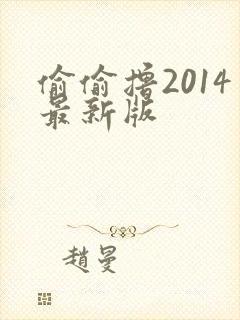 偷偷撸2014
最新版
趙曼